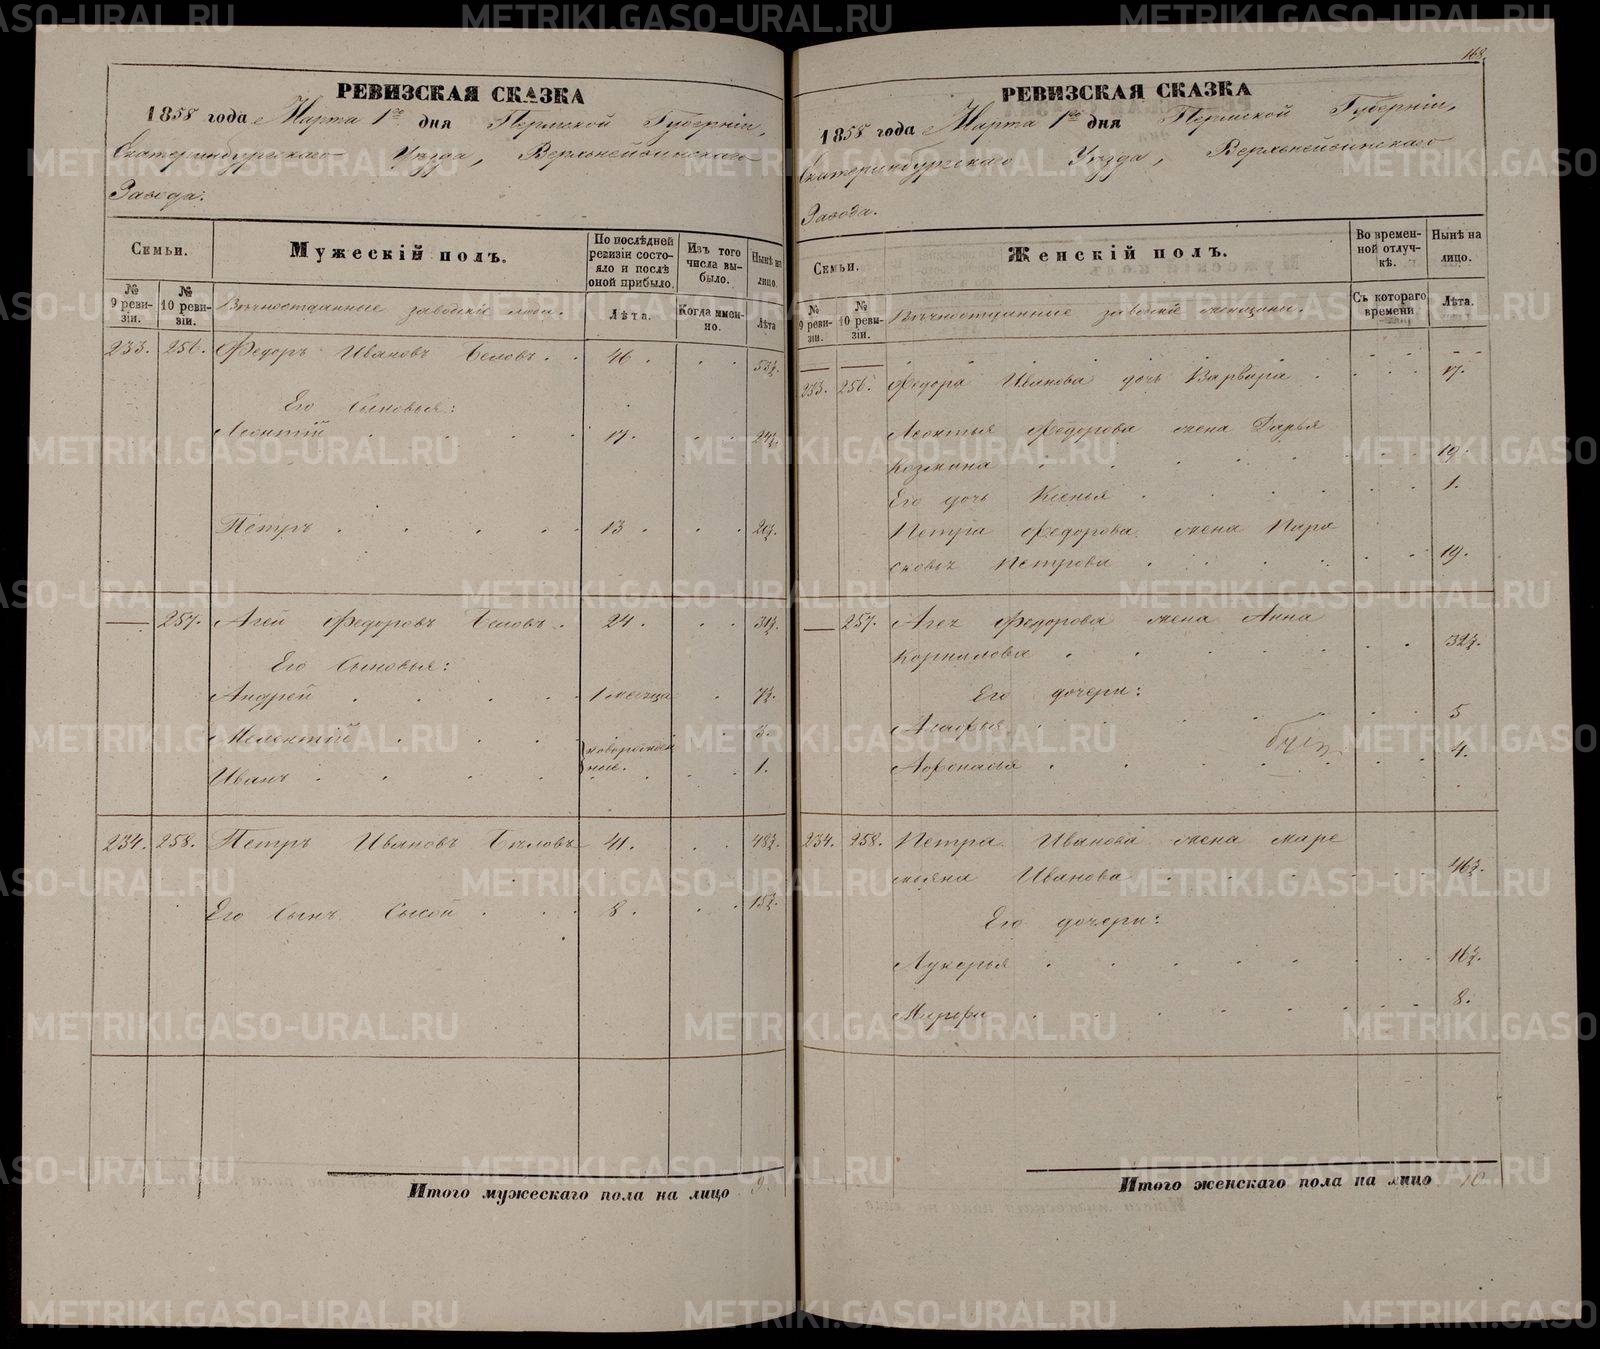 168.
РЕВИЗСКАЯ СКАЗКА
1858 года Марта 1го дня Пермской Губерніи,
Екатеринбургскаго Уѣзда, Верхнейвинскаго
Завода.
Семьи.
Мужескій полъ.
По послѣдней ревизіи состояло и послѣ оной прибыло.
Изъ того числа выбыло.
Нынѣ на лицо.
№ 9 ревизіи.
№ 10 ревизіи.
Вѣчноотданные заводскіе люди.
Лѣта.
Когда именно.
Лѣта
233. 256. Федоръ Ивановъ Беловъ. 46. 53½
Его Сыновья:
Леонтій 17. 24½
Петръ 13. 20½
— 257. Агей Федоровъ Беловъ. 24. 31½
Его Сыновья:
Андрей 1 месяца 7½
Мелентій 3.
новорожденные.
Иванъ 1.
234. 258. Петръ Ивановъ Бѣловъ 41. 48½
Его Сынъ Сысой 8. 15½
Итого мужескаго пола на лицо 9
РЕВИЗСКАЯ СКАЗКА
1858 года Марта 1го дня Пермской Губерніи,
Екатеринбургскаго Уѣзда, Верхнейвинскаго
Завода.
Семьи.
Женскій полъ.
Во временной отлучкѣ.
Нынѣ на лицо.
№ 9 ревизіи.
№ 10 ревизіи.
Вѣчноотданные заводскіе женщины.
Съ котораго времени
Лѣта.
233. 256. Федора Иванова дочь Варвара 17.
Леонтья Федорова жена Дарья
Козмина 19.
Его дочь Ксенья 1.
Петра Федорова жена Пара
сковья Петрова 19.
— 257. Агея Федорова жена Анна
Корнилова 32½
Его дочери:
Агафья 5
Афонасья 4.
234. 258. Петра Иванова жена Маре
мьяна Иванова 46½
Его дочери:
Лукерья 16½
8.
Итого женскаго пола на лицо 10
METRIKI.GASO-URAL.RU